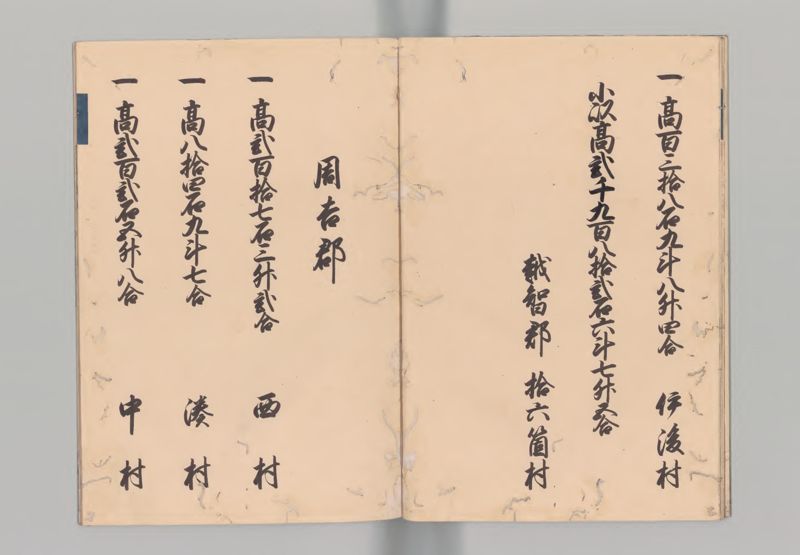 一 髙百三拾八石九斗八升四合 伊後村
小以髙弐千九百八拾弐石六斗七升五合
越智郡 拾六箇村
周吉郡
一 髙弐百拾七石三升弐合 西村
一 髙八拾四石九斗七合 湊村
一 髙弐百弐石五升八合 中村